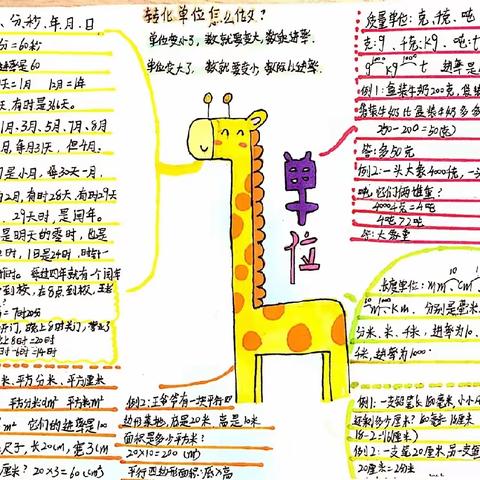 转化单位怎么做？
单位变小了，数就要变大，数乘进率
单位变大了，数就要变小，数除以进率
、分秒、年月、日
分=60秒
进率是60
天=1月 12月=1年
天，有时是366天。
1月、3月、5月、7月、8月
月，每月31天，但
月是小月，每30天一月，
2月，有时28天，有时29天
29天时，是闰年。
是明天的零时，也是
时，1日是24时，时针一
每过四年就有一个闰年
到校，
8时=20时
时-6时=14时
质量单位：克、千克、吨
克：g 千克：kg 吨：t
g 1000 kg 1000 t 进率是
例1：盒装牛奶200克，袋装
袋装牛奶比盒装牛奶多多
250-200=50(克)
答：多50克
例2：一头大象4000千克，一
吨，它们俩谁重？
4000千克=4吨
4吨＞2吨
答：大象重
单位
长度单位：mm 10 cm
m 1000 km 分别是毫米
分米、米、千米，进率为10、
千米，进率为1000.
米、平方分米、平方厘米
平方分米dm² 平方米m²
m² 它们的进率是100
尺子，长20cm，宽3cm
厘米？20×3=60(cm²)
例2：王爷爷有一块平行四
边形菜地，底是20米，高是10米
面积是多少平方米？
20×10=200(m²)
平行四边形面积：底×高
例1：一支铅笔长180毫米，小小
还剩多少厘米？
18-2=16(厘米)
例2：一支笔20厘米，另一支笔
20厘米=2分米